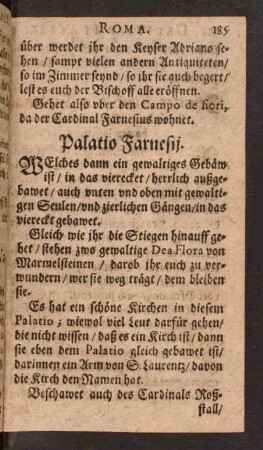 ROMA. 185
über werdet jhr den Keyser Adriano se-
hen / sampt vielen andern Antiquiteten /
so im Zimmer seynd / so ihr sie auch begert /
lest es euch der Bischoff alle eröffnen.
Gehet also vber den Campo de fiori,
da der Cardinal Farnesius wohnet.
Palatio Farnesij.
WElches dann ein gewaltiges Gebäw
ist / in das viereckt / herrlich außge-
bawet / auch vnten vnd oben mit gewalti-
gen Seulen / vnd zierlichen Gängen / in das
viereckt gebawet.
Gleich wie jhr die Stiegen hinauff ge-
het / stehen zwo gewaltige Dea Flora von
Marmelsteinen / darob jhr euch zu ver-
wundern / wer sie weg trägt / dem bleiben
sie.
Es hat ein schöne Kirchen in diesem
Palatio; wiewol viel Leut darfür gehen /
die nicht wissen / daß es ein Kirch ist / dann
sie eben dem Palatio gleich gebawet ist /
darinnen ein Arm von S. Laurentz / davon
die Kirch den Namen hat.
Beschawet auch des Cardinals Roß-
stall /